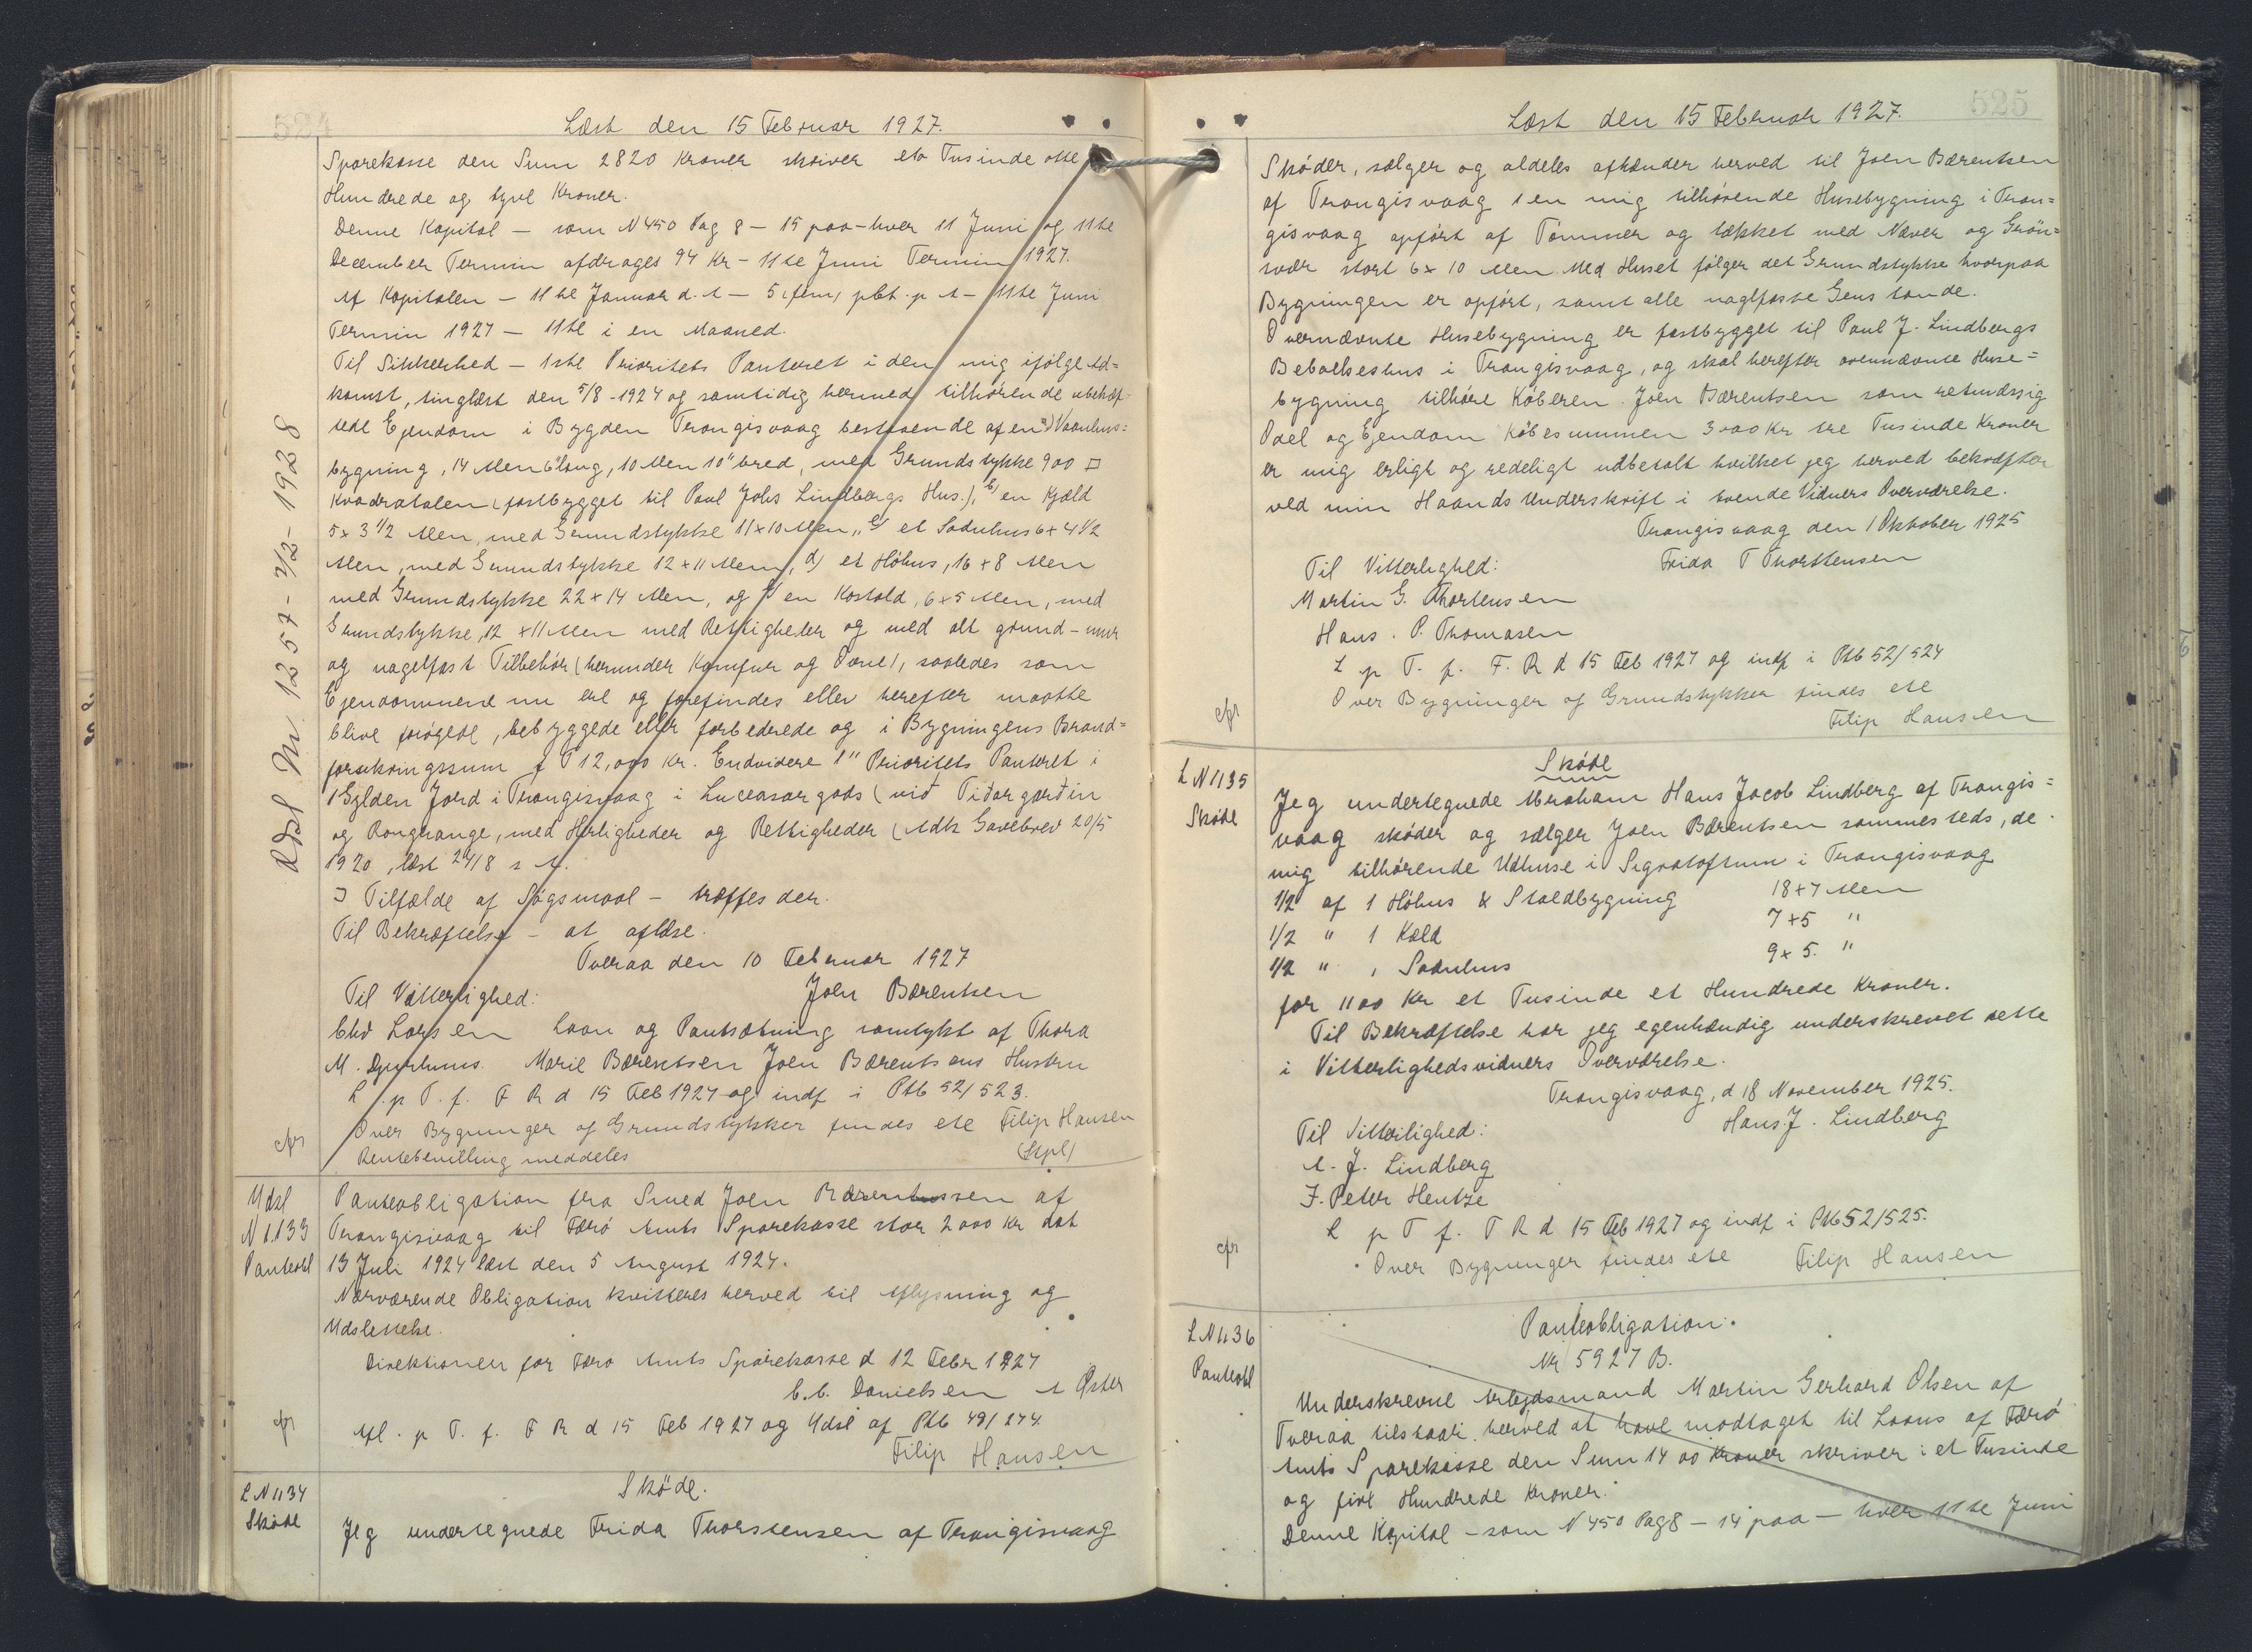 524
Læst den 15 Februar 1927.
Sparekasse den Sum 2820 Kroner skriver eto Tusinde otte
Hundrede og tyve Kroner.
Denne Kapital – som N 450 Pag 8 – 15 paa – hver 11 Juni og 11te
December Termin afdrages 94 Kr – 11te Juni Termin 1927.
Af Kapitalen – 11te Januar d. A – 5 (fem) pCt. p A – 11te Juni
Termin 1927 – 11te i en Maaned.
Til Sikkerhed – 1ste Prioritets Panteret i den mig ifølge Ad=
komst, tinglæst den 5/8 - 1924 og samtidig hermed tilhørende ubehæf=
tede Ejendom i Bygden Trangisvaag bestaaende af en a) Vaanhus=
bygning, 14 Alen 6" lang, 10 Alen 10" bred, med Grundstykke 900 □
Kvadratalen (fastbygget til Poul Johs Lindbergs Hus.), b) en Kjæld
5 x 3 1/2 Alen, med Grundstykke 11 x 10 Alen, c) et Sodnhus 6 x 4 1/2
Alen, med Grundstykke 12 x 11 Alen, d) et Høhus, 16 x 8 Alen
med Grundstykke 22 x 14 Alen, og e) en Kostald, 6 x 5 Alen, med
Grundstykke, 12 x 11 Alen med Rettigheder og med alt grund- mur
og nagelfast Tilbehør (herunder Komfur og Ovne), saaledes som
Ejendommene nu ere og forefindes eller herefter maatte
blive forøgede, bebyggede eller forbedrede og i Bygningens Brand=
forsikringssum f T 12,000 Kr. Endvidere 1" Prioritets Panteret i
1 Gylden Jord i Trangisvaag i Lucasargods (við Tiðargarðin
og Rongrange, med Herligheder og Rettigheder (Adk Gavebrev 20/5
1920, læst 24/8 s A.
I Tilfælde af Søgsmaal – træffes der.
Til Bekræftelse – at aflæse.
Tveraa den 10 Februar 1927
Til Vitterlighed: Joen Bærentsen
Chr Larsen Laan og Pantsætning samtykt af Thora
M. Djurhuus. Marie Bærentsen Joen Bærentsens Hustru
L. p T. f. F R d 15 Feb 1927 og indf i Ptb 52/523.
cfr Over Bygninger og Grundstykker findes ete Filip Hansen
Rentebevilling meddeles (Stpl)
Udsl Nr. 1257 - 2/2 - 1928
Udsl
N 1133
Panteobl
Panteobligation fra Smed Joen Bærentssen af
Trangisvaag til Færø Amts Sparekasse stor 2000 Kr dat
13 Juli 1924 læst den 5 August 1924.
Nærværende Obligation kvitteres herved til Aflysning og
Udslettelse.
Direktionen for Færø Amts Sparekasse d 12 Febr 1927
C.C. Danielsen A Øster
cfr Afl. p T. f. F R d 15 Feb 1927 og Udsl af Ptb 49/274.
Filip Hansen
L N 1134
Skøde
Skøde.
Jeg undertegnede Frida Thorstensen af Trangisvaag
525
Læst den 15 Februar 1927.
Skøder, sælger og aldeles afhænder herved til Joen Bærentsen
af Trangisvaag 1 en mig tilhørende Husebygning i Tran=
gisvaag opført af Tømmer og tækket med Næver og Grøn=
svær stort 6 x 10 Alen. Med Huset følger det Grundstykke hvorpaa
Bygningen er opført, samt alle naglfaste Genstande.
Overnævnte Husebygning er fastbygget til Poul J. Lindbergs
Beboelseshus i Trangisvaag, og skal herefter ovennævnte Huse=
bygning tilhøre Køberen Joen Bærentsen som retmæssig
Odel og Ejendom Købesummen 3000 Kr tre Tusinde Kroner
er mig erligt og redeligt udbetalt hvilket jeg herved bekræfter
ved min Haands Underskrift i tvende Vidners Overværelse.
Trangisvaag den 1 Oktober 1925
Til Vitterlighed: Frida T Thorstensen
Martin G. Thortensen
Hans. P. Thomasen
L p T. f. F. R d 15 Feb 1927 og indf i Ptb 52/524
cfr Over Bygninger og Grundstykker findes ete
Filip Hansen
L N 1135
Skøde
Skøde
Jeg undertegnede Abraham Hans Jacob Lindberg af Trangis=
vaag skøder og sælger Joen Bærentsen sammesteds, de
mig tilhørende Udhuse i Sigratoftum i Trangisvaag
1/2 af 1 Høhus & Staldbygning 18 x 7 Alen
1/2 " 1 Kæld 7 x 5 "
1/2 " 1 Sodnhus 9 x 5. "
for 1100 Kr et Tusinde et Hundrede Kroner.
Til Bekræftelse har jeg egenhændig underskrevet dette
i Vitterlighedsvidners Overværelse.
Trangisvaag, d 18 November 1925.
Til Vitterlighed: Hans J. Lindberg
A. J. Lindberg
J. Peter Hentze
L p T f. F R d 15 Feb 1927 og indf i Ptb 52/525.
cfr Over Bygninger findes ete Filip Hansen
L N 1136
Panteobl
Panteobligation.
Nr 5927 B.
Underskrevne Arbejdsmand Martin Gerhard Olsen af
Tveraa tilstaar herved at have modtaget til Laans af Færø
Amts Sparekasse den Sum 1400 Kroner skriver : et Tusinde
og fire Hundrede Kroner.
Denne Kapital – som N 450 Pag 8 – 14 paa – hver 11te Juni